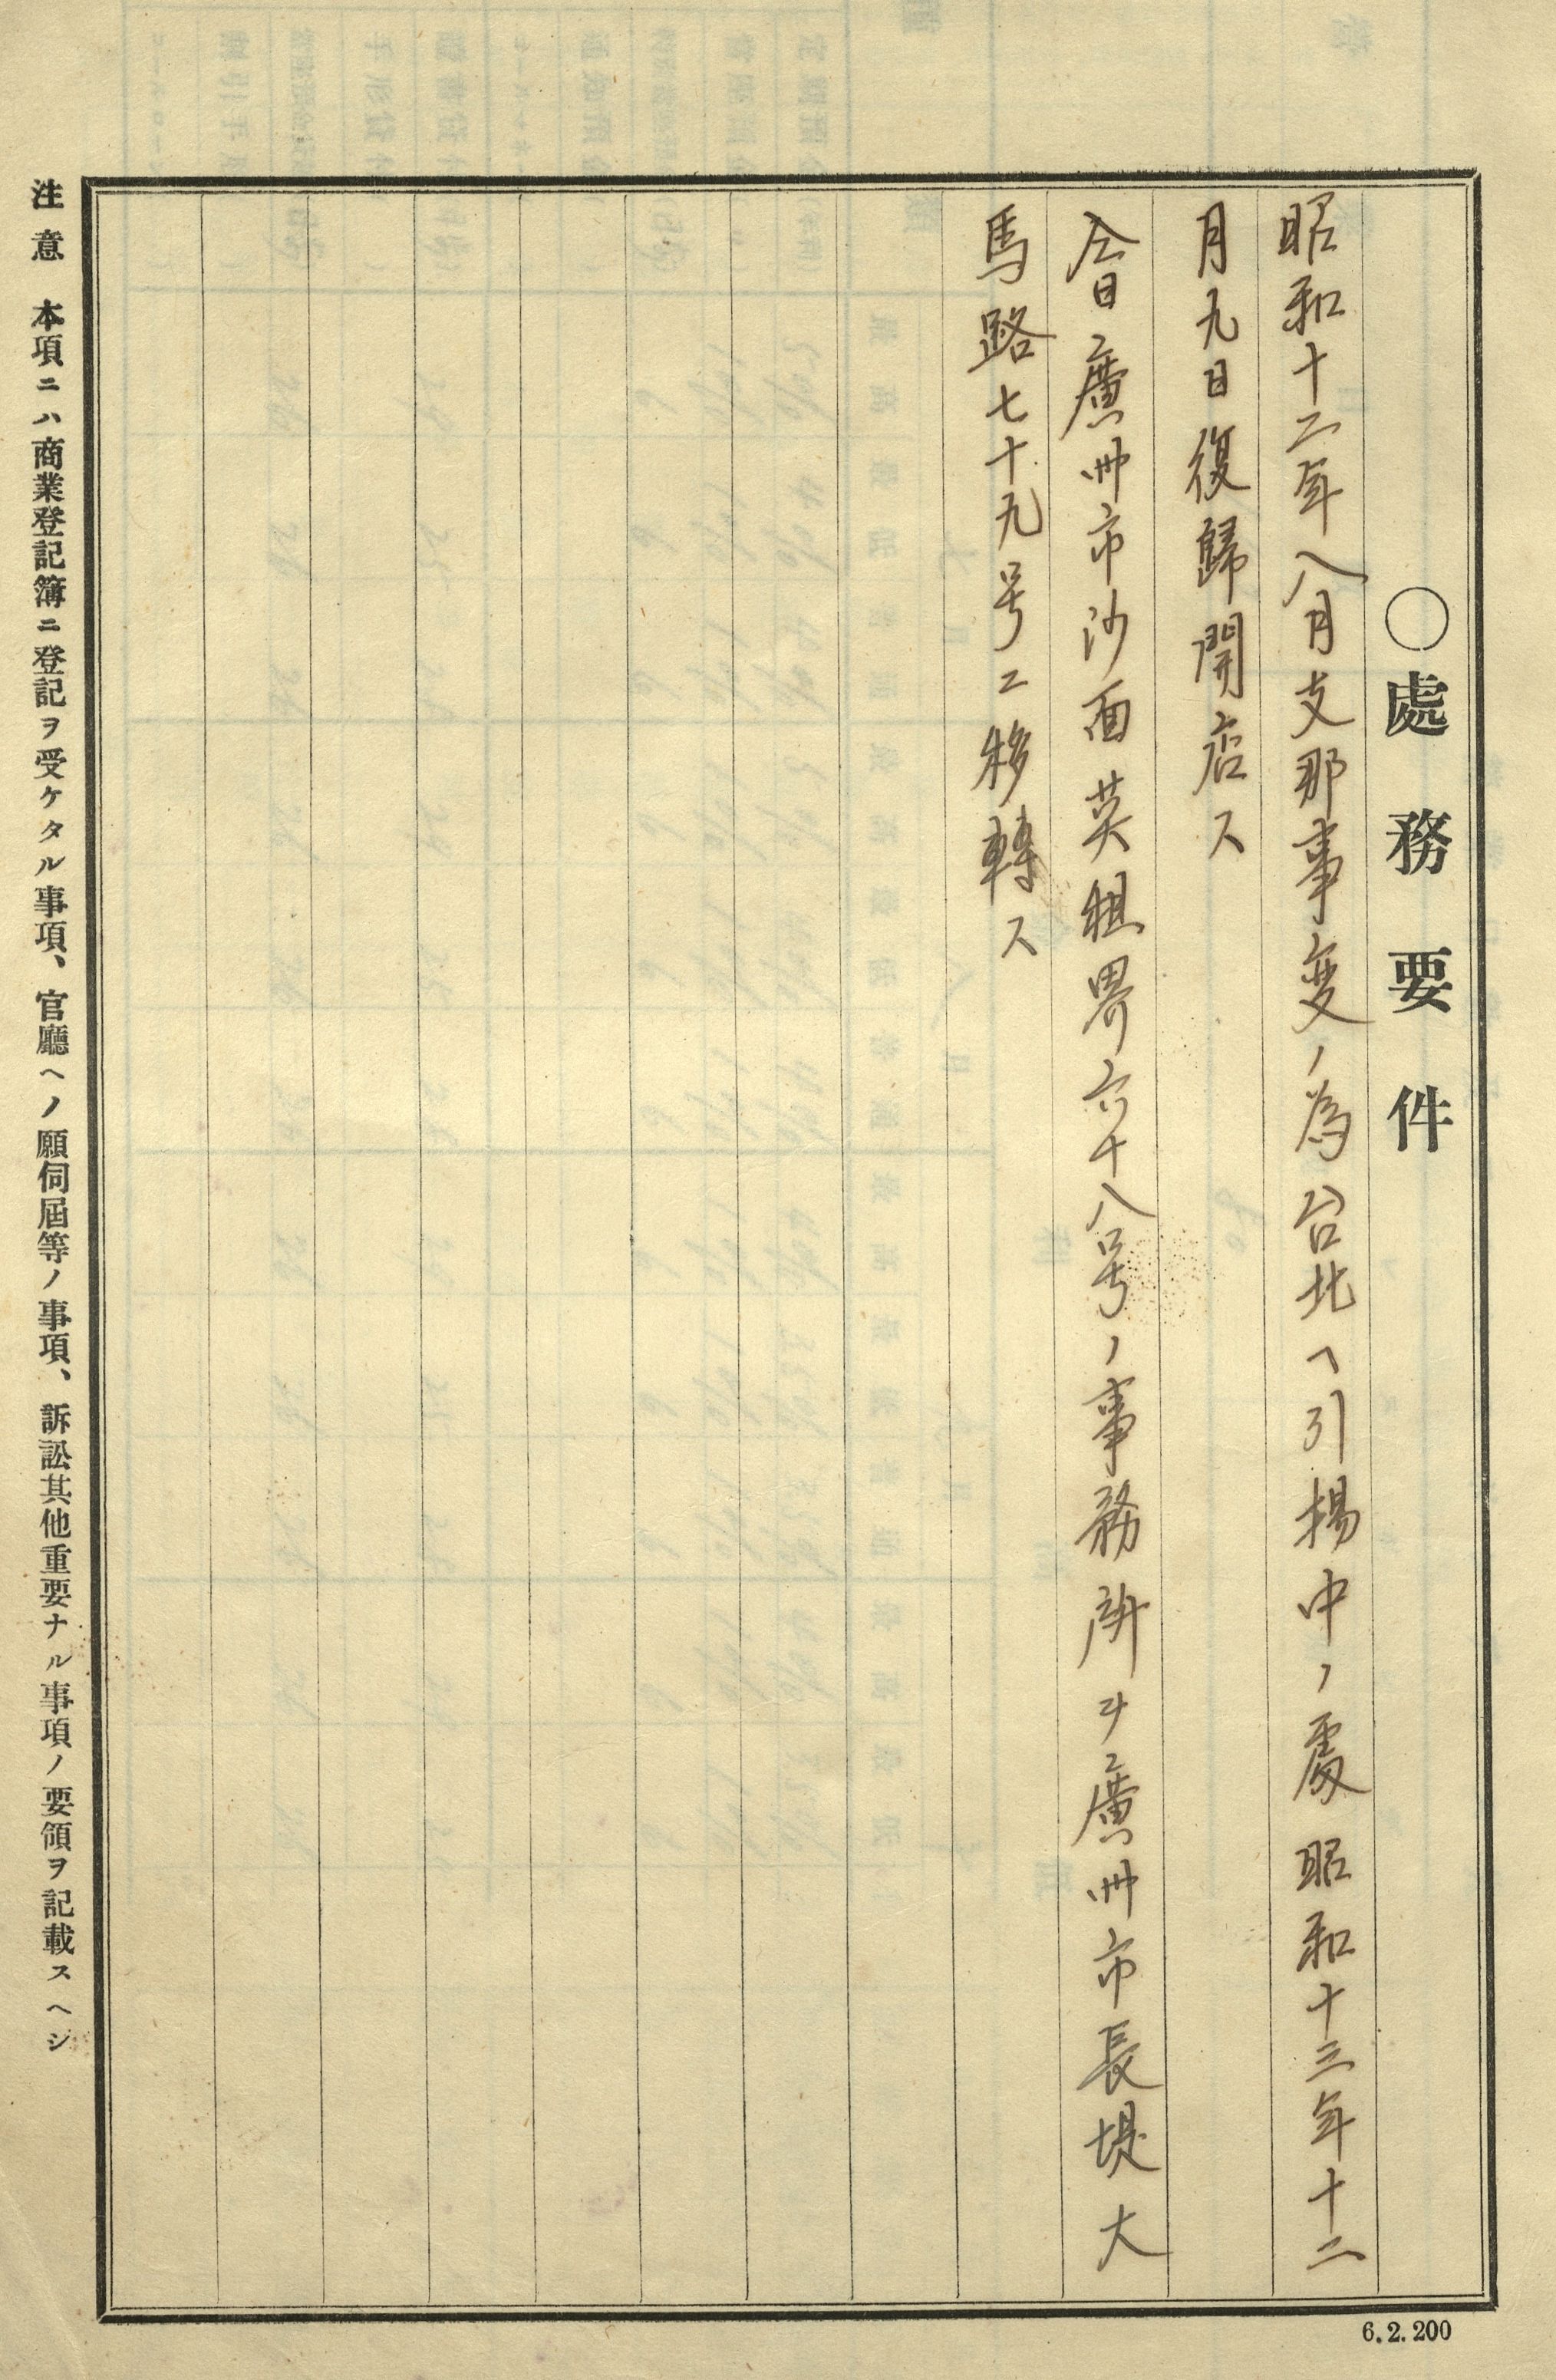 〇處務要件
昭和十二年八月支那事変ノ為台北ヘ引揚中ノ處昭和十三年十二
月九日復歸開店ス
仝日廣州市沙面英租界六十八号ノ事務所ヲ廣州市長堤大
馬路七十九号ニ移轉ス
注意 本項ニハ商業登記簿ニ登記ヲ受ケタル事項、官廳ヘノ願伺屆等ノ事項、訴訟其他重要ナル事項ノ要領ヲ記載スヘシ
6.2.200